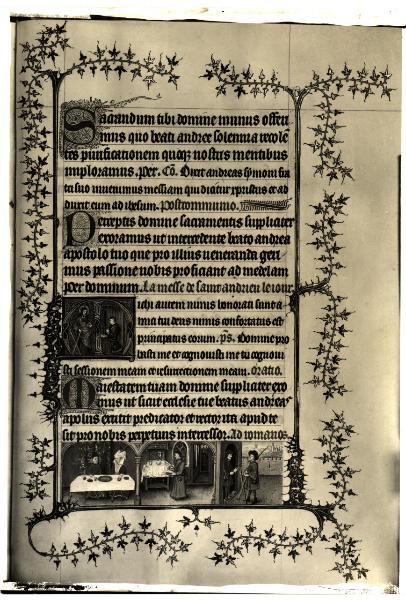 Sacrandum tibi domine munus offeri
mus quo beati andree solennia recolen
tes purificationem quoqz nostris mentibus
imploramus. per. Co. Dixit andreas symoni fra
tri suo invenimus messiam qui dicitur xpristus et ad
duxit eum ad ihesum. Postcommunio.
Perceptis domine sacramentis supliciter
exoramus ut intercedente beato andrea
apostolo tuo que pro illius veneranda geri
mus passione nobis proficiant ad medelam
per dominum. La messe de saint andrieu le iour
ichi autem nimis honorati sunt a
mici tui deus nimis confortatus est
principatus eorum. ps. Domine pro
basti me et cognovisti me tu cognovi
sti sessionem meam et resurrectionem meam. oratio.
Maiestatem tuam domine supliciter exo
ramus ut sicut ecclesie tue beatus andreas
apostolus extitit predicator et rector ita apud te
sit pro nobis perpetuus intercessor. Ad romanos